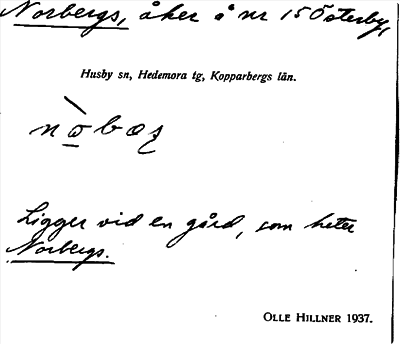 Norbergs, åker å nr 15 Österby,
Husby sn, Hedemora tg, Kopparbergs län.
Ligger vid en gård, som heter
Norbergs.
OLLE HILLNER 1937.